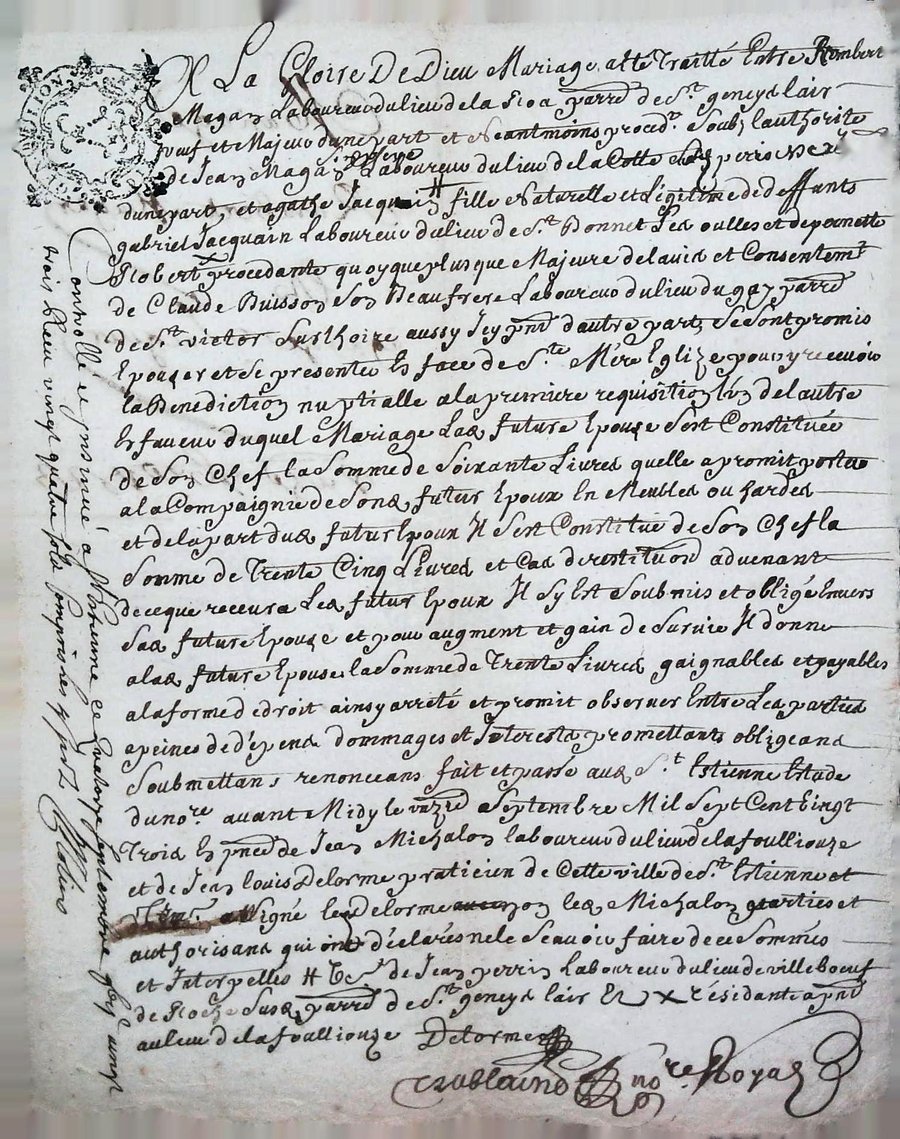 A La Gloire De Dieu Mariage a été Traitté Entre Rombert
Magan Laboureur du lieu de la Roa parre de St geneys lair
veuf et Majeur d'une part et Neantmoins procedt Soubz lauthorité
de Jean Magan Laboureur du lieu de la Cotte
d'une part, et agathe Jacquain fille Naturelle et Legitime de deffants
gabriel Jacquain Laboureur du lieu de St Bonnet Les oulles et de pernette
Robert procedante quoyque plus que Majeure de lavis et Consentemt
de Claude Buisson Son Beaufrere Laboureur du lieu du gay parre
de St victor Sur Lhoire aussy Icy pnt d'autre part, Se Sont promis
Epouzer et Se presenter En face de Ste Mére Eglize pour y recevoir
la Benediction nuptialle a la premiere requisition lun de lautre
En faveur duquel Mariage Lad future Epouze Sest Constituée
de Son Chef la Somme de Soixante Livres quelle a promit porter
a la Compagnie de Sond futur Epoux En Meubles ou hardes
et de la part dud futur Epoux Il Sest Constitué de Son Chef la
Somme de Trente Cinq Livres et Cas de restituon advenant
de ce que recevra Led futur Epoux Il Sy Est Soubmis et obligé Envers
Sad future Epouze et pour augment et gain de Survie Il donne
a lad future Epouse la Somme de Trente Livres gaignables et payables
a la forme de droit ainsy arreté et promit observer Entre Les parties
a peines de dépens dommages et Interests promettants obligeans
Soubmettans, renonceans fait et passé aud St Estienne Estude
du nore avant Midy le unze Septembre Mil Sept Cent Vingt
Trois En pnce de Jean Michalon laboureur du lieu de la foulliouze
et de Jean Louis Delorme praticien de Cette ville de St Estienne et
a Signé led Delorme non led Michalon parties et
authorisans qui ont déclarés ne le Scavoir faire de ce Sommés
et Interpellés # de Jean perrin Laboureur du lieu de villeboeuf
de Roche Susd parre de St geneys lair Et x résidante a pnt
au lieu de la foulliouze Delorme
nore Royal
Conrollé et ynsinué a St Estienne ce quatorze septembre 1700 vingt
trois Receu vingt quatre sols